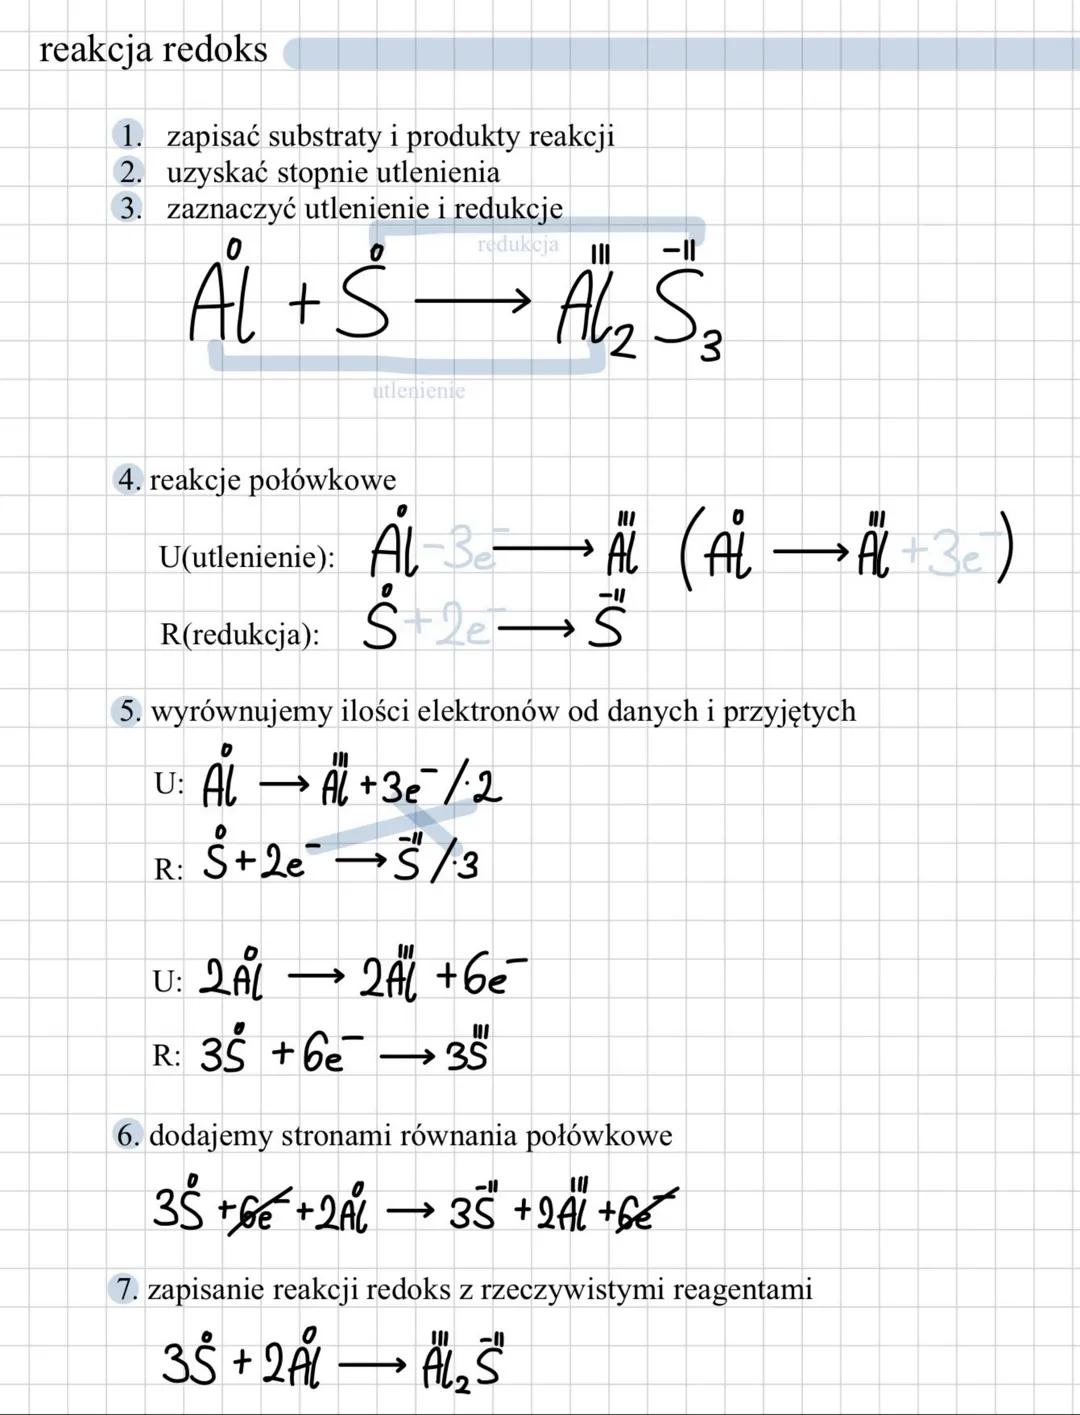 reakcja redoks
1. zapisać substraty i produkty reakcji
2. uzyskać stopnie utlenienia
3. zaznaczyć utlenienie i redukcje
redukcja
0 0 III -II
Al + S → Al₂ S₃
utlenienie
4. reakcje połówkowe
0 III 0 III
U(utlenienie): Al -3e⁻ → Al (Al → Al +3e⁻)
0 -II
R(redukcja): S +2e⁻ → S
5. wyrównujemy ilości elektronów od danych i przyjętych
0 III
U: Al → Al +3e⁻ /·2
0 -II
R: S+2e⁻ → S /·3
0 III
U: 2Al → 2Al +6e⁻
0 III
R: 3S +6e⁻ → 3S
6. dodajemy stronami równania połówkowe
0 0 -II III
3S +6e⁻ +2Al → 3S +2Al +6e⁻
7. zapisanie reakcji redoks z rzeczywistymi reagentami
0 0 III -II
3S + 2Al → Al₂ S